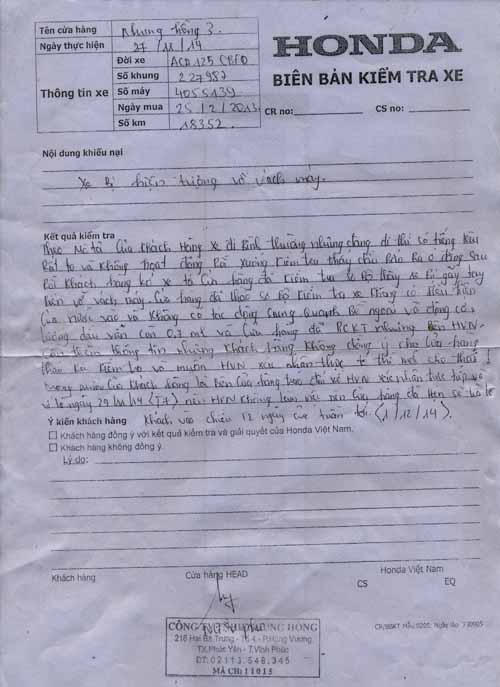 Tên cửa hàng Nhung hồng 3.
Ngày thực hiện 27/11/14
HONDA
BIÊN BẢN KIỂM TRA XE
Thông tin xe
Đời xe ACB 125 CBFD
Số khung 227987
Số máy 4055139
Ngày mua 25/2/2013.
Số km 18352.
CR no: CS no:
Nội dung khiếu nại
Xe bị hiện tượng vỡ vách máy.
Kết quả kiểm tra
Theo mô tả của khách hàng xe đi bình thường nhưng đang đi thì có tiếng kêu
rất to và không hoạt động rồi xuống kiểm tra thấy chảy dầu ra ở đằng sau
rồi khách hàng kéo xe tới cửa hàng đã kiểm tra sơ bộ thấy xe bị gãy tay
biên vỡ vách máy. Cửa hàng đã tháo sơ bộ kiểm tra xe không có
của nước vào và không có tác động xung quanh bên ngoài và động cơ
lượng dầu vẫn còn 0,3 ml và cửa hàng đã BCKT nhưng bên HVN
thông tin nhưng khách hàng không đồng ý cho cửa hàng
kiểm tra và muốn HVN xác nhận thực tế thì mới cho tháo
của khách hàng là bên cửa hàng báo cho HVN xác nhận trực tiếp
ngày 29/11/14 (T7) nên HVN không làm việc nên cửa hàng đã hẹn
Ý kiến khách hàng Khách vào chiều 12 ngày tuần tới (1/12/14).
Khách hàng đồng ý với kết quả kiểm tra và giải quyết của Honda Việt Nam.
Khách hàng không đồng ý.
Lý do:
Khách hàng Cửa hàng HEAD Honda Việt Nam
CS EQ
CÔNG TY NHUNG HỒNG
216 Hai Bà Trưng - Tổ 4 - P.Hùng Vương
TX.Phúc Yên - T.Vĩnh Phúc
ĐT: 02113.548.345
MÃ CH: 11015